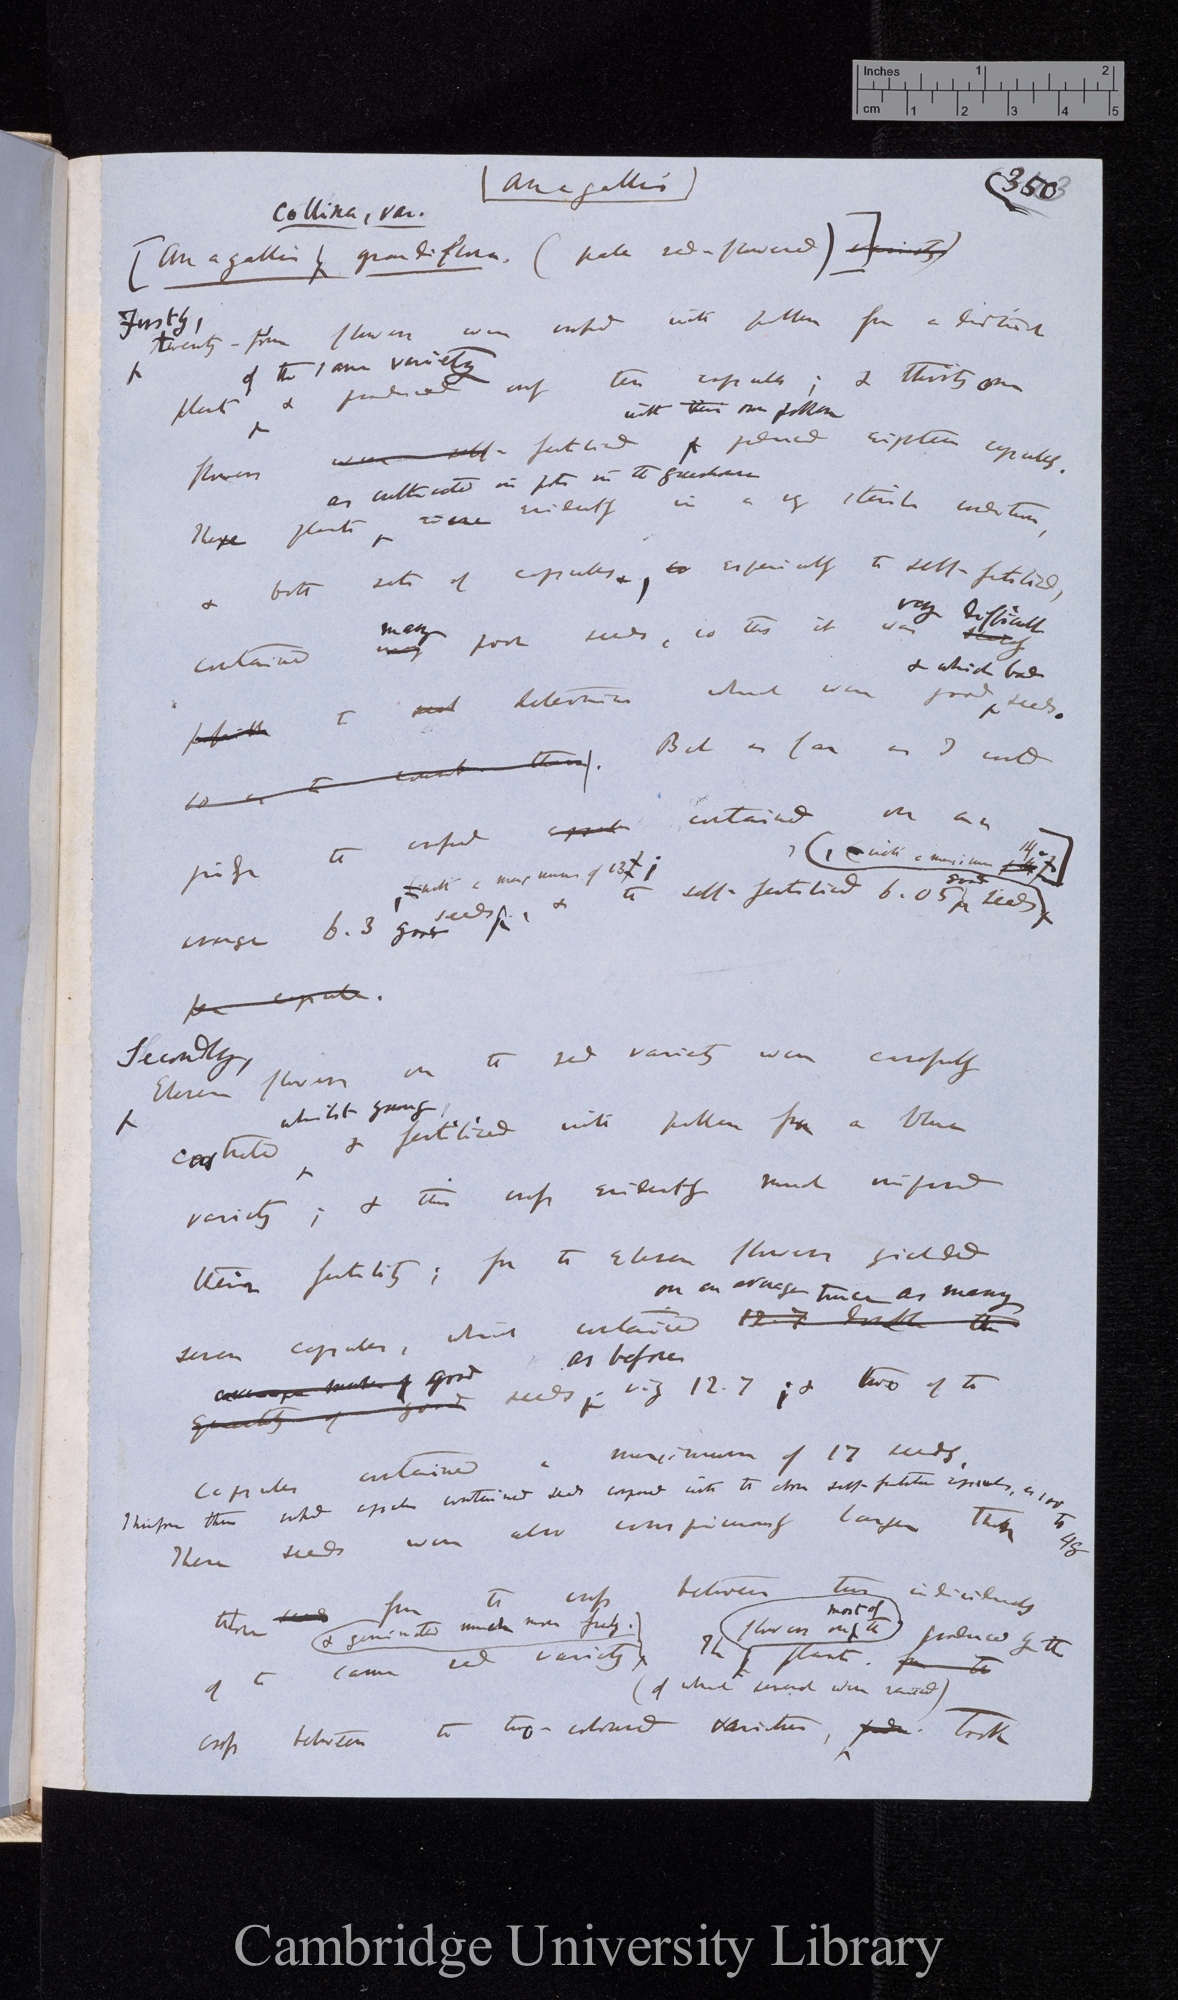 Inches 1 2
cm 1 2 3 4 5
Anagallis
(350
collina, var.
[Anagallis grandiflora. (pale red-flowered)] variety)
Firstly,
twenty-four flowers were crossed with pollen from a distinct
of the same variety
plant & produced only ten capsules; & thirty one
with their own pollen
flowers were self-fertilised & produced eighteen capsules.
as cultivated in pots in the greenhouse
These plants, were evidently in a very sterile condition,
& both sets of capsules, so especially the self-fertilised,
many very difficult
contained many poor seeds, so that it was
& which bad
possible to determine which were good seeds.
so as to count them). But as far as I could
judge the crossed capsules contained on an
, with a maximum of 13; , with a maximum 14
good
average 6.3 good seeds, & the self-fertilised 6.05 seeds
per capsule.
Secondly,
Eleven flowers on the red variety were carefully
whilst young,
castrated & fertilised with pollen from a blue
variety; & this cross evidently much improved
their fertility; for the eleven flowers yielded
on an average twice as many
seven capsules, which contained 12.7 double the
average number of good as before
quantity of good seeds, viz 12.7; & two of the
capsules contained a maximum of 17 seeds.
Therefore these crossed capsules contained seeds compared with the above self-fertilised capsules, as 100 to 48
These seeds were also conspicuously larger than
those seeds from the cross between two individuals
& germinated much more freely. flowers on most of the
of the same red variety The plants. produced by the
(of which several were raised)
cross between the two-coloured varieties, took
Cambridge University Library